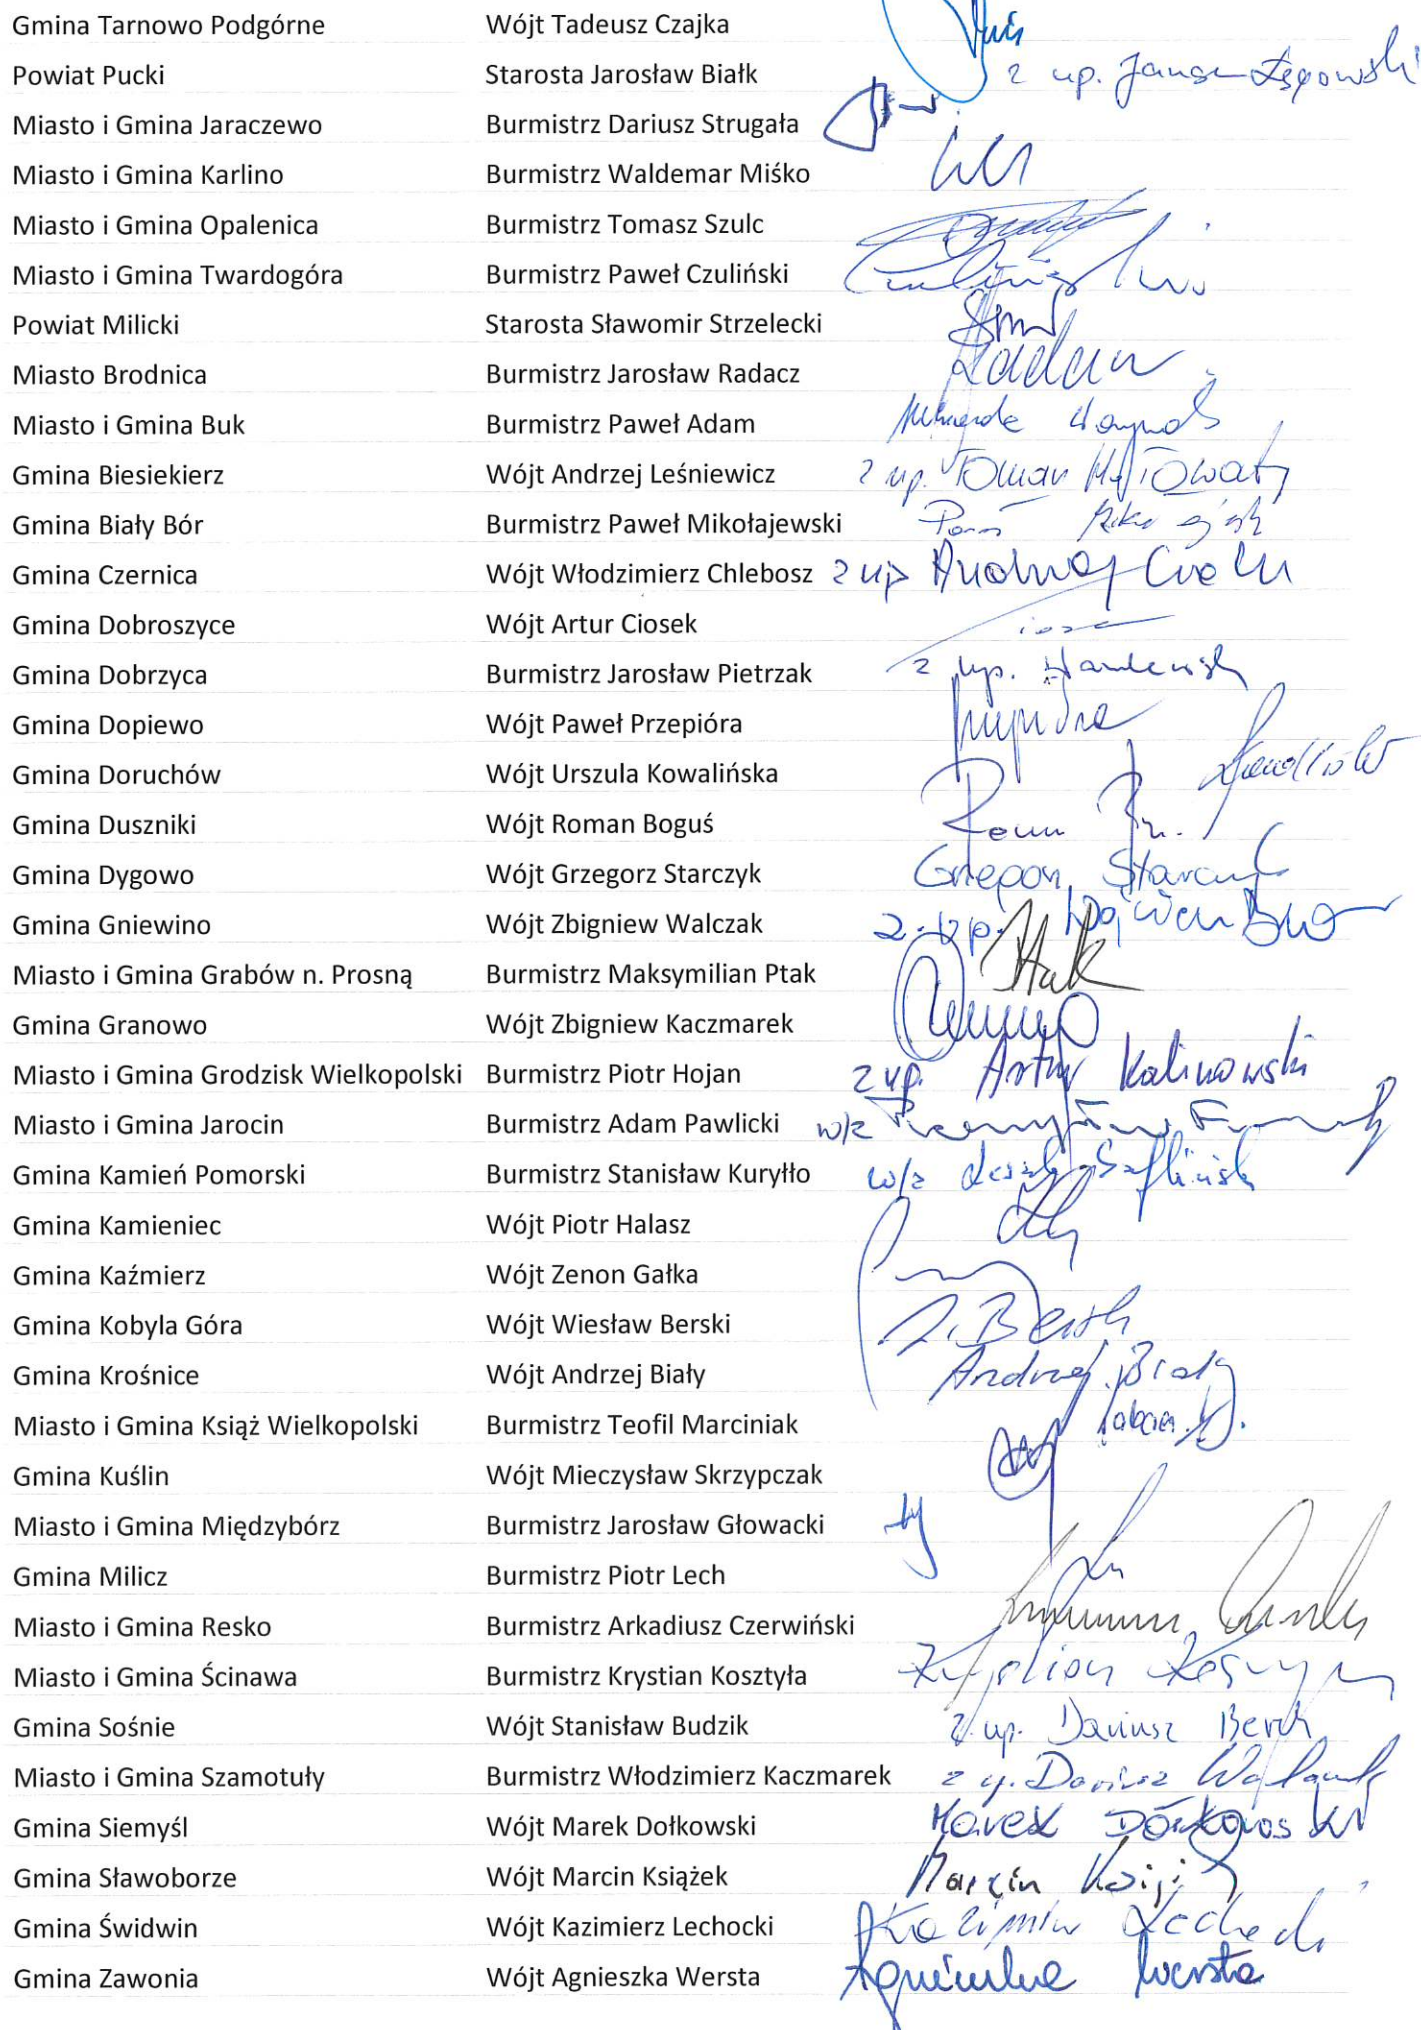 Gmina Tarnowo Podgórne Wójt Tadeusz Czajka
Powiat Pucki Starosta Jarosław Białk z up.
Miasto i Gmina Jaraczewo Burmistrz Dariusz Strugała
Miasto i Gmina Karlino Burmistrz Waldemar Miśko
Miasto i Gmina Opalenica Burmistrz Tomasz Szulc
Miasto i Gmina Twardogóra Burmistrz Paweł Czuliński
Powiat Milicki Starosta Sławomir Strzelecki
Miasto Brodnica Burmistrz Jarosław Radacz
Miasto i Gmina Buk Burmistrz Paweł Adam
Gmina Biesiekierz Wójt Andrzej Leśniewicz z up.
Gmina Biały Bór Burmistrz Paweł Mikołajewski
Gmina Czernica Wójt Włodzimierz Chlebosz z up
Gmina Dobroszyce Wójt Artur Ciosek
Gmina Dobrzyca Burmistrz Jarosław Pietrzak z up.
Gmina Dopiewo Wójt Paweł Przepióra
Gmina Doruchów Wójt Urszula Kowalińska
Gmina Duszniki Wójt Roman Boguś
Gmina Dygowo Wójt Grzegorz Starczyk
Gmina Gniewino Wójt Zbigniew Walczak z up.
Miasto i Gmina Grabów n. Prosną Burmistrz Maksymilian Ptak Ptak
Gmina Granowo Wójt Zbigniew Kaczmarek
Miasto i Gmina Grodzisk Wielkopolski Burmistrz Piotr Hojan z up. Artur Kalinowski
Miasto i Gmina Jarocin Burmistrz Adam Pawlicki w/z
Gmina Kamień Pomorski Burmistrz Stanisław Kuryłło w/z
Gmina Kamieniec Wójt Piotr Halasz
Gmina Kaźmierz Wójt Zenon Gałka
Gmina Kobyla Góra Wójt Wiesław Berski
Gmina Krośnice Wójt Andrzej Biały Andrzej Biały
Miasto i Gmina Książ Wielkopolski Burmistrz Teofil Marciniak
Gmina Kuślin Wójt Mieczysław Skrzypczak
Miasto i Gmina Międzybórz Burmistrz Jarosław Głowacki
Gmina Milicz Burmistrz Piotr Lech
Miasto i Gmina Resko Burmistrz Arkadiusz Czerwiński
Miasto i Gmina Ścinawa Burmistrz Krystian Kosztyła
Gmina Sośnie Wójt Stanisław Budzik z up. Dariusz
Miasto i Gmina Szamotuły Burmistrz Włodzimierz Kaczmarek
Gmina Siemyśl Wójt Marek Dołkowski Marek Dołkowski
Gmina Sławoborze Wójt Marcin Książek Marcin
Gmina Świdwin Wójt Kazimierz Lechocki Kazimierz Lechocki
Gmina Zawonia Wójt Agnieszka Wersta Agnieszka Wersta